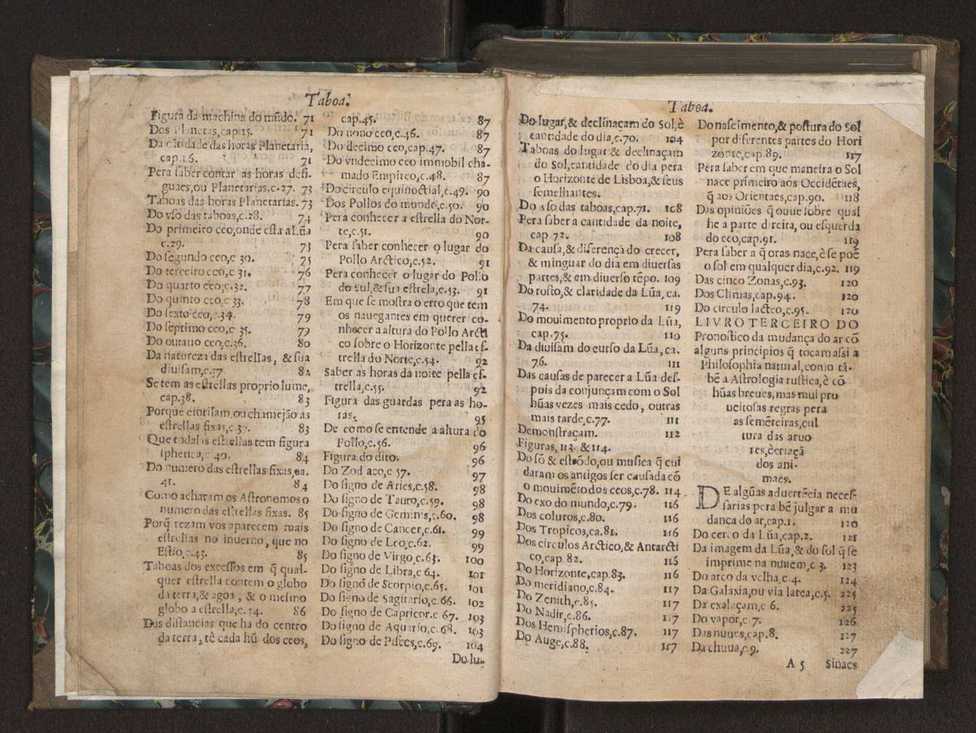 Taboa.
Figura da machina do mũdo. 71
Dos Planetas,cap.15. 71
Da cãtidade das horas Planetaria,
cap.26. 71
Pera saber contar as horas desi-
guaes,ou Planetarias.c.27. 73
Taboas das horas Planetarias. 73
Do vso das taboas,c.28. 74
Do primeiro ceo,onde està a Lũa
c.29. 75
Do segundo ceo,c 30. 75
Do terceiro ceo,c 31. 76
Do quarto ceo,c.32. 77
Do quinto ceo,c 33. 78
Do sexto ceo,c.34. 79
Do septimo ceo,c 35. 79
Do ourano ceo,c.36. 80
Da natureza das estrellas, & sua
diuisam,c.37 82
Se tem as estrellas proprio lume,
cap.38. 83
Porque cintilam,ou chamejão as
estrellas fixas,c.39. 83
Que todas as estrellas tem figura
spherica,c 40. 84
Do numero das estrellas fixas,ca.
41. 84
Como acharam os Astronomos o
numero das estrellas fixas. 85
Porq̃ rezam vos aparecem mais
estrellas no inuerno, que no
Estio,c.43. 85
Taboas dos excessos em q̃ qual-
quer estrella contem o globo
da terra,& agoa, & o mesmo
globo a estrella,c.44. 86
Das distancias que ha do centro
da terra, tè cada hũ dos ceos,
cap.45. 87
Do nono ceo,c.46. 87
Do decimo ceo,cap.47. 87
Do vndecimo ceo immobil cha-
mado Empireo,c.48. 87
Do circulo equinoctial,c.49. 90
Dos Pollos do mundo,c.50. 90
Pera conhecer a estrella do Nor-
te,c.51. 90
Pera saber conhecer o lugar do
Pollo Arctico,c.52. 91
Pera conhecer o lugar do Pollo
do sul,& sua estrella,c.53. 91
Em que se mostra o erro que tem
os nauegantes em querer co-
nhecer a altura do Pollo Arcti
co sobre o Horizonte pella es-
trella do Norte,c.54. 92
Saber as horas da noite pella es-
trella,c.55. 92
Figura das guardas pera as ho-
ras. 95
De como se entende a altura do
Pollo,c.56. 96
Figura do dito. 96
Do Zodiaco,c 57. 97
Do signo de Aries,c.58. 98
Do signo de Tauro,c.59. 98
Do signo de Geminis,c.60. 98
Do signo de Cancer,c.61. 99
Do signo de Leo,c.62. 99
Do signo de Virgo,c.63. 100
Do signo de Libra,c 64. 101
Do signo de Scorpio,c.65. 101
Do signo de Sagitario,c.66. 102
Do signo de Capricor.c 67. 103
Do signo de Aquario,c.68. 103
Do signo de Pisces,c.69. 104
Do lu-
Taboa.
Do lugar,& declinaçam do Sol,è
cantidade do dia,c.70. 104
Taboas do lugar & declinaçam
do Sol,cantidade do dia pera
o Horizonte de Lisboa,& seus
semelhantes.
Do vso das taboas,cap.71. 108
Pera saber a cantidade da noite,
cap 72. 108
Da causa,& diferença do crecer,
& minguar do dia em diuersas
partes,& em diuerso tẽpo. 109
Do rosto,& claridade da Lũa, ca.
74. 119
Do mouimento proprio da Lũa,
cap.75. 110
Da diuisam do curso da Lũa, ca.
76. 111
Das causas de parecer a Lũa des-
pois da conjunçam com o Sol
hũas vezes mais cedo, outras
mais tarde,c.77. 111
Demonstraçam. 112
Figuras, 113. & 114.
Do sõ & estrõdo,ou musica q̃ cui
daram os antigos ser causada cõ
o mouimẽto dos ceos,c.78. 114
Do exo do mundo,c.79. 116
Dos coluros,c.80. 116
Dos Tropicos,ca.81. 116
Dos circulos Arctico,& Antarcti
co,cap 82. 116
Do Horizonte,cap.83. 116
Do meridiano,c.84. 117
Do Zenith,c.85. 117
Do Nadir,c.86. 117
Dos Hemispherios,c.87. 117
Do Auge,c.88. 117
Do nascimento,& postura do Sol
por diferentes partes do Hori
zonte,cap.89. 117
Pera saber em que maneira o Sol
nace primeiro aos Occidẽtaes,
q̃ aos Orientaes,cap.90. 118
Das opiniões q̃ ouue sobre qual
he a parte direita, ou esquerda
do ceo,cap.91. 119
Pera saber a q̃ oras nace,è se poẽ
o sol em qualquer dia,c.92. 119
Das cinco Zonas,c.93. 120
Dos Climas,cap.94. 120
Do circulo lacteo,c.95. 120
LIVRO TERCEIRO DO
Pronostico da mudança do ar cõ
alguns principios q̃ tocam assi a
Philosophia natural,como tã-
bẽ a Astrologia rustica,è cõ
hũas breues,mas mui pro
ueitosas regras pera
as semẽteiras,cul
tura das aruo
res,ècriaçã
dos ani-
maes.
DE algũas aduertẽcia neces-
sarias pera bẽ julgar a mu
dança do ar,cap.1. 120
Do cerco da Lũa,cap.2. 121
Da imagem da Lũa,& do sol q̃ se
imprime na nuuem,c 3. 123
Do arco da velha,c 4. 124
Da Galaxia,ou via lactea,c.5. 225
Da exalaçam,c 6. 225
Do vapor,c 7. 126
Das nuues,cap.8. 227
Da chuua,c 9. 227
A 5 Sinaes